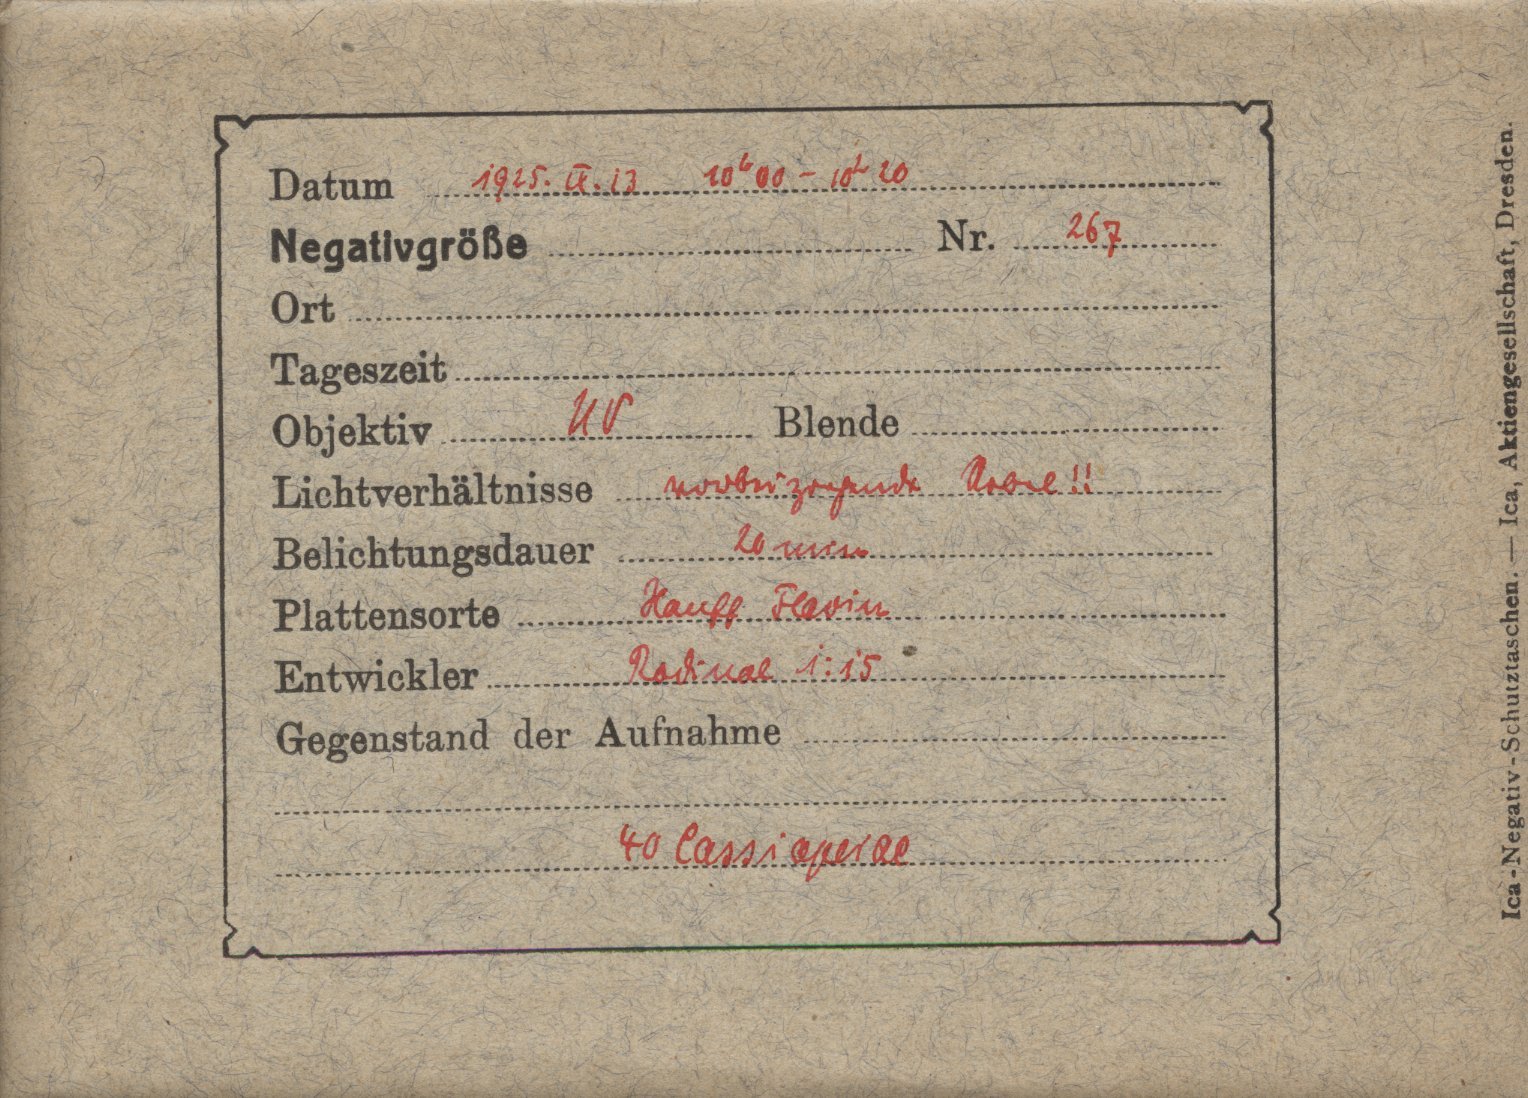 Datum 1925. IX. 13 10h00 – 10h20
Negativgröße Nr. 267
Ort
Tageszeit
Objektiv UV Blende
Lichtverhältnisse vorbeiziehende Nebel!!
Belichtungsdauer 20 min
Plattensorte Hauff Flavin
Entwickler Rodinal 1:15
Gegenstand der Aufnahme
40 Cassiopeiae
Ica-Negativ-Schutztaschen. — Ica, Aktiengesellschaft, Dresden.